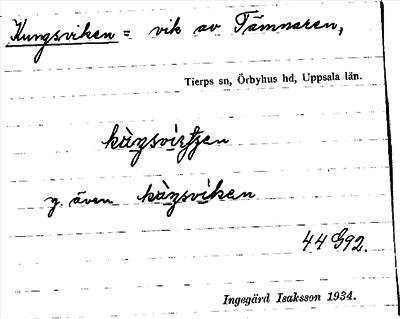 Kungsviken = vik av Tämnaren,
Tierps sn, Örbyhus hd, Uppsala län.
y. även
44 G92.
Ingegärd Isaksson 1934.